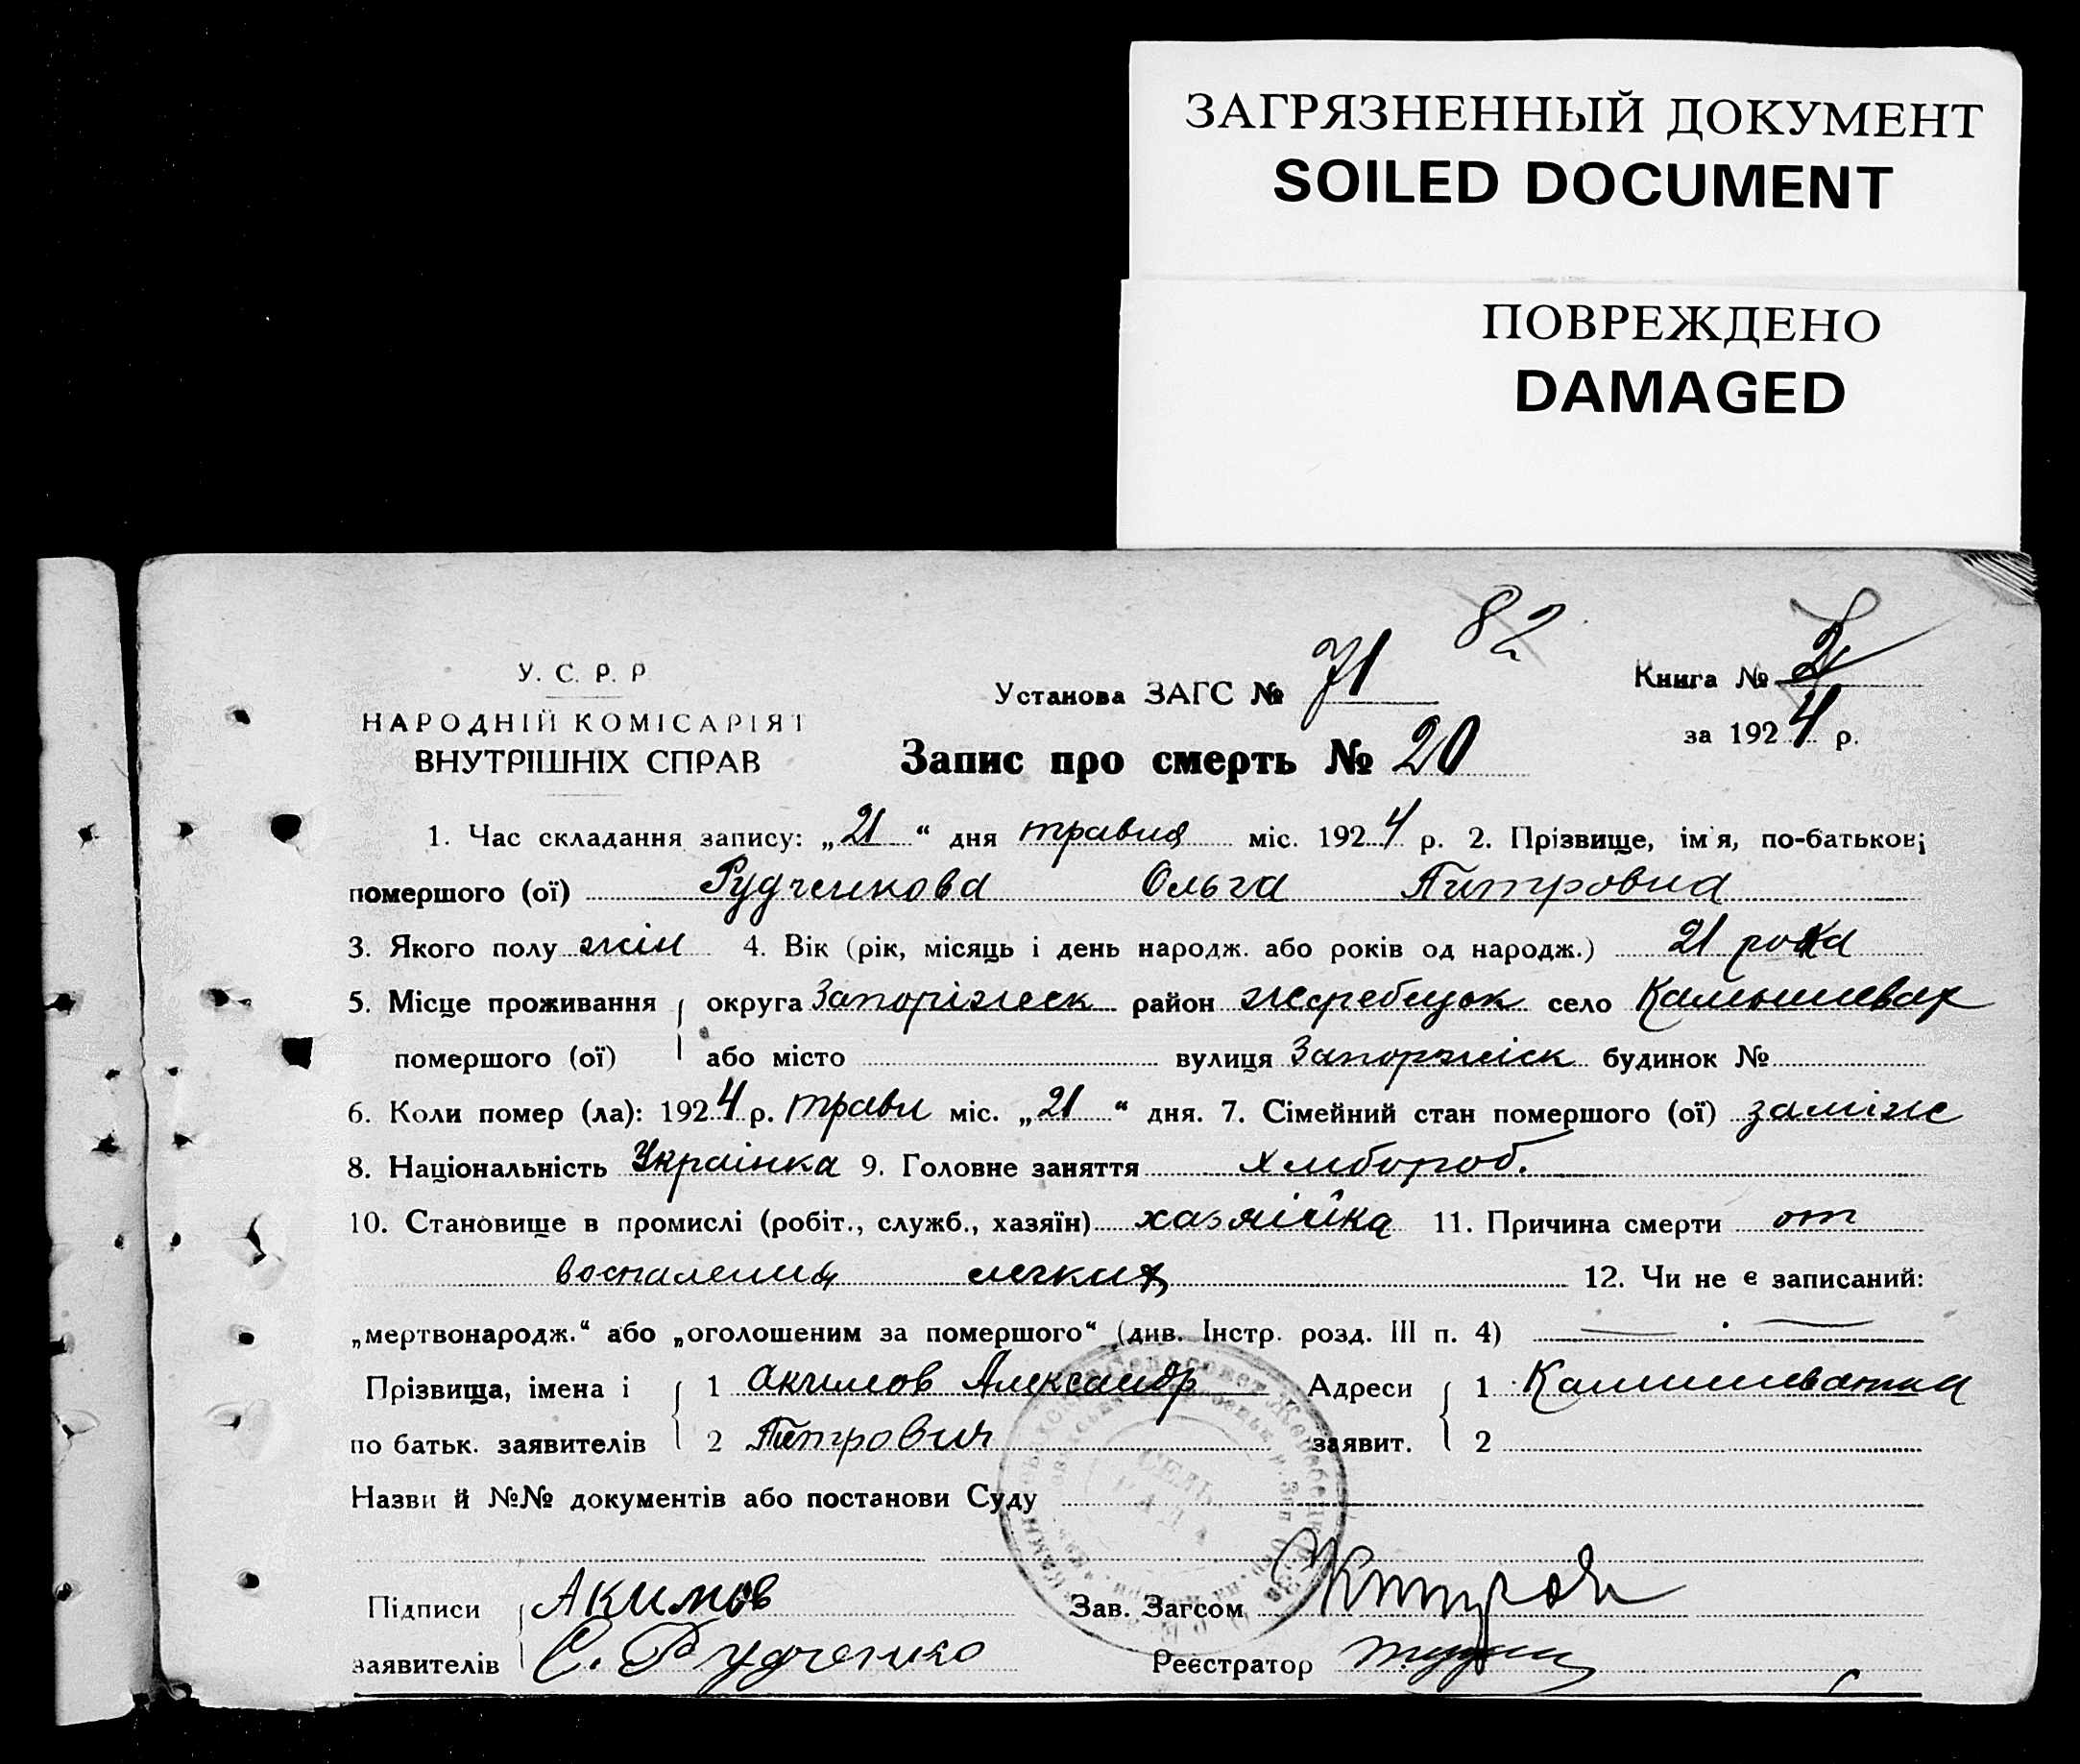 ЗАГРЯЗНЕННЫЙ ДОКУМЕНТ
SOILED DOCUMENT
ПОВРЕЖДЕНО
DAMAGED
82
У. С. Р. Р
НАРОДНІЙ КОМІСАРІЯТ
ВНУТРІШНІХ СПРАВ
Установа ЗАГС № 71
Книга № 2
за 1924 р.
Запис про смерть № 20
1. Час складання запису: „21“ дня травня міс. 1924 р. 2. Прізвище, ім'я, по-батькові
помершого (ої) Рудченкова Ольга Питровна
3. Якого полу жін 4. Вік (рік, місяць і день народж. або років од народж.) 21 рока
5. Місце проживання округа Запоріжск район жеребецьк село Камышевах
помершого (ої) або місто вулиця Запоржіск будинок №
6. Коли помер (ла): 1924 р. травн міс. „21“ дня. 7. Сімейний стан помершого (ої) заміж
8. Національність Українка 9. Головне заняття хлибороб.
10. Становище в промислі (робіт., служб., хазяїн) хазяійка 11. Причина смерти от
воспаления легких 12. Чи не є записаний:
„мертвонародж.“ або „оголошеним за помершого“ (див. Інстр. розд. III п. 4)
Прізвища, імена і 1 Акимов Александр Адреси 1 Камишеватка
по батьк. заявителів 2 Питрович заявит. 2
Назви й №№ документів або постанови Суду
СЕЛЬ
РАДА
Підписи Акимов Зав. Загсом
заявителів С. Рудченко Реєстратор